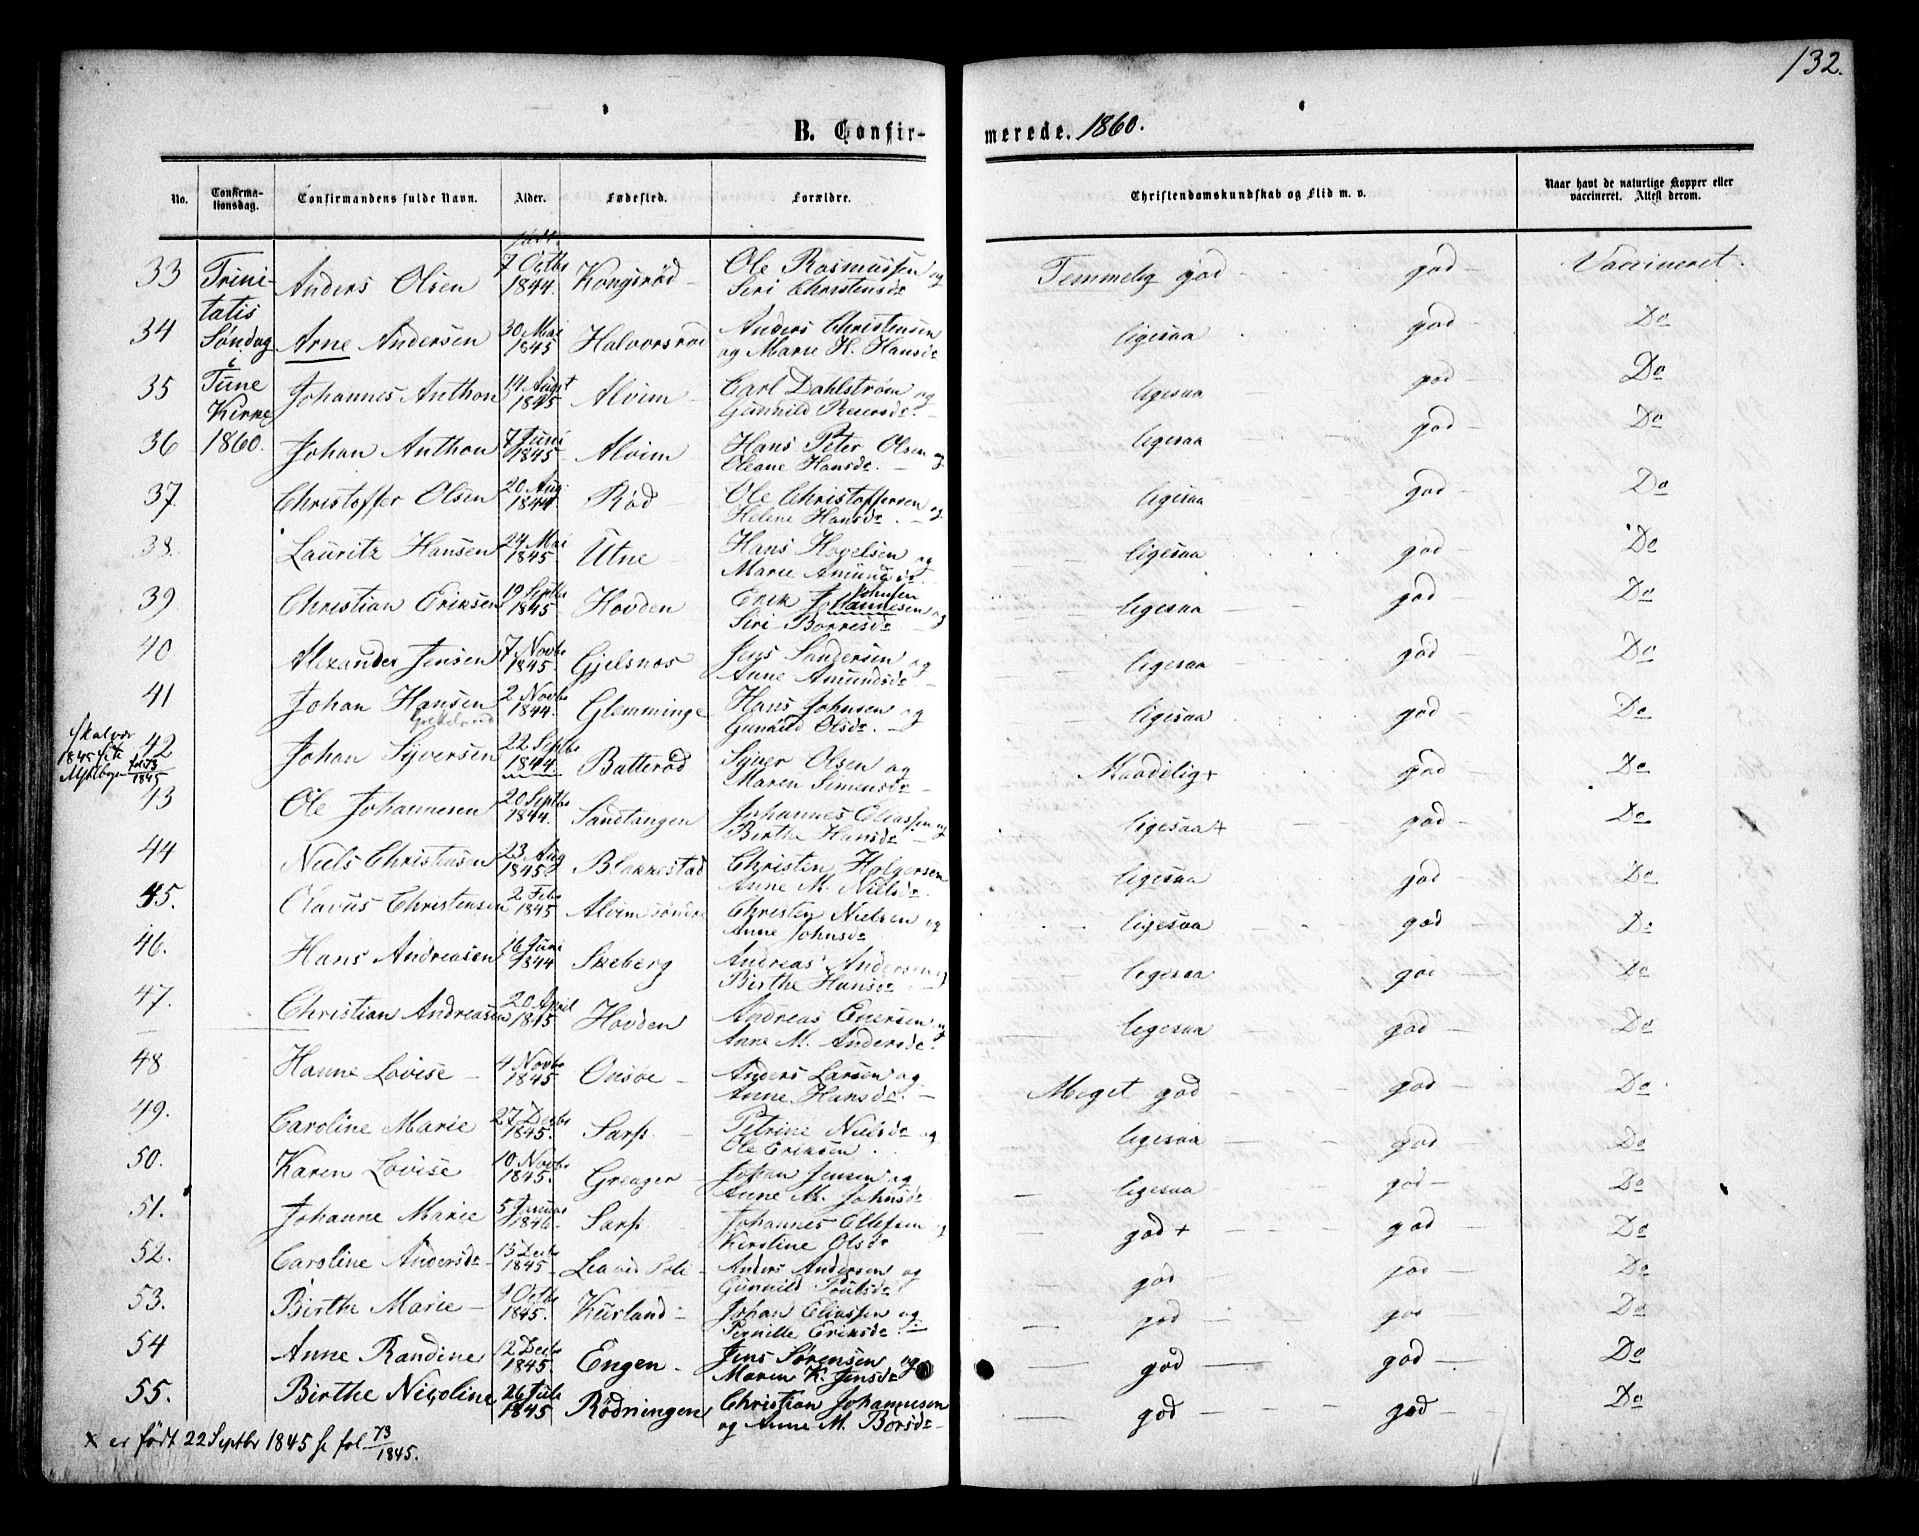 132.
B. Confir-
merede. 1860.
No.
Confirma-
tionsdag.
Confirmandens fulde Navn.
Alder.
Fødested.
Forældre.
Christendomskundskab og Flid m. v.
Naar havt de naturlige Kopper eller
vaccineret. Attest derom.
født.
Trini-
tatis
Søndag
i
Tune
Kirke
1860.
33 Anders Olsen 7 Octbr 1844. Kongsrød Ole Rasmussen og
Siri Christensdr Temmelig god god Vaccineret.
34 Arne Andersen 30 Mai 1845 Halvorsrød Anders Christensen
og Marie H. Hansdr ligesaa god Do
35 Johannes Anthon 14 August 1845 Alvim Carl Dahlstrøm og
Gunnild Reiersdr ligesaa god Do
36 Johan Anthon 7 Juni 1845 Alvim Hans Peter Olsen og
Oleane Hansdr. ligesaa god Do
37. Christoffer Olsen 20 Aug. 1844 Rød Ole Christoffersen og
Helene Hansdr. ligesaa god Do
38. Lauritz Hansen 24 Mai 1845 Utne Hans Hovelsen og
Marie Amundsdr. ligesaa god Do
39 Christian Eriksen 19 Septbr 1845 Hovden Erik Johannesen Johnsen og
Siri Borresdr ligesaa god Do
40 Alexander Jensen 7 Novbr 1845 Gjelsnes Jens Sandersen og
Anne Amundsdr. ligesaa god Do
41 Johan Hansen 2 Novbr 1844. Glemminge Hans Johnsen og
Gunild Olsdr. ligesaa god Do
Skal vær
1845 se
fol 73/1845
42 Johan Syversen 22 Septbr 1844. Batterød Syver Olsen og
Maren Simensdr Maadelig + god Do
43 Ole Johannesen 20 Septbr 1844. Sandtangen Johannes Eliassen og
Birthe Hansdr ligesaa + god Do
44 Niels Christensen 23 Aug 1845 Blakkestad Christen Holgersen
Anne M. Nielsdr. ligesaa god Do
45. Olavus Christensen 2 Febr 1845 Alvim søndre Christen Nielsen og
Anne Johnsdr ligesaa god Do
46. Hans Andreasen 16 Juni 1844 Skeberg Andreas Andersen og
Birthe Hansdr ligesaa god Do
47. Christian Andreasen 20 April 1845 Hovden Andreas Evensen og
Anne M. Andersdr ligesaa god Do
48 Hanne Lovise 4 Novbr 1845. Onsøe Anders Larsen og
Anne Hansdr. Meget god god Do
49. Caroline Marie 27 Decbr 1845. Sarp. Petrine Nielsdr og
Ole Eriksen. ligesaa god Do
50. Karen Lovise 10 Novbr 1845. Greager Johan Jensen og
Anne M. Johnsdr ligesaa god Do
51. Johanne Marie 5 Januar 1846. Sarp. Johannes Ellefsen og
Kerstine Olsdr god + god Do
52. Caroline Andersdr 13 Decbr 1845 Anders Andersen og
Gunnild Poulsdr god god Do
53. Birthe Marie 9 Octbr 1845. Kurland Johan Eliassen og
Pernille Eriksdr. god god Do
54 Anne Randine 12 Decbr 1845 Engen Jens Sørensen og
Maren K. Jensdr god god Do
55. Birthe Nicoline 26 Juli 1845 Rødningen Christian Johannesen
og Anne M. Borsdr god god Do
x er født 22 Septbr 1845 se fol 73/1845.